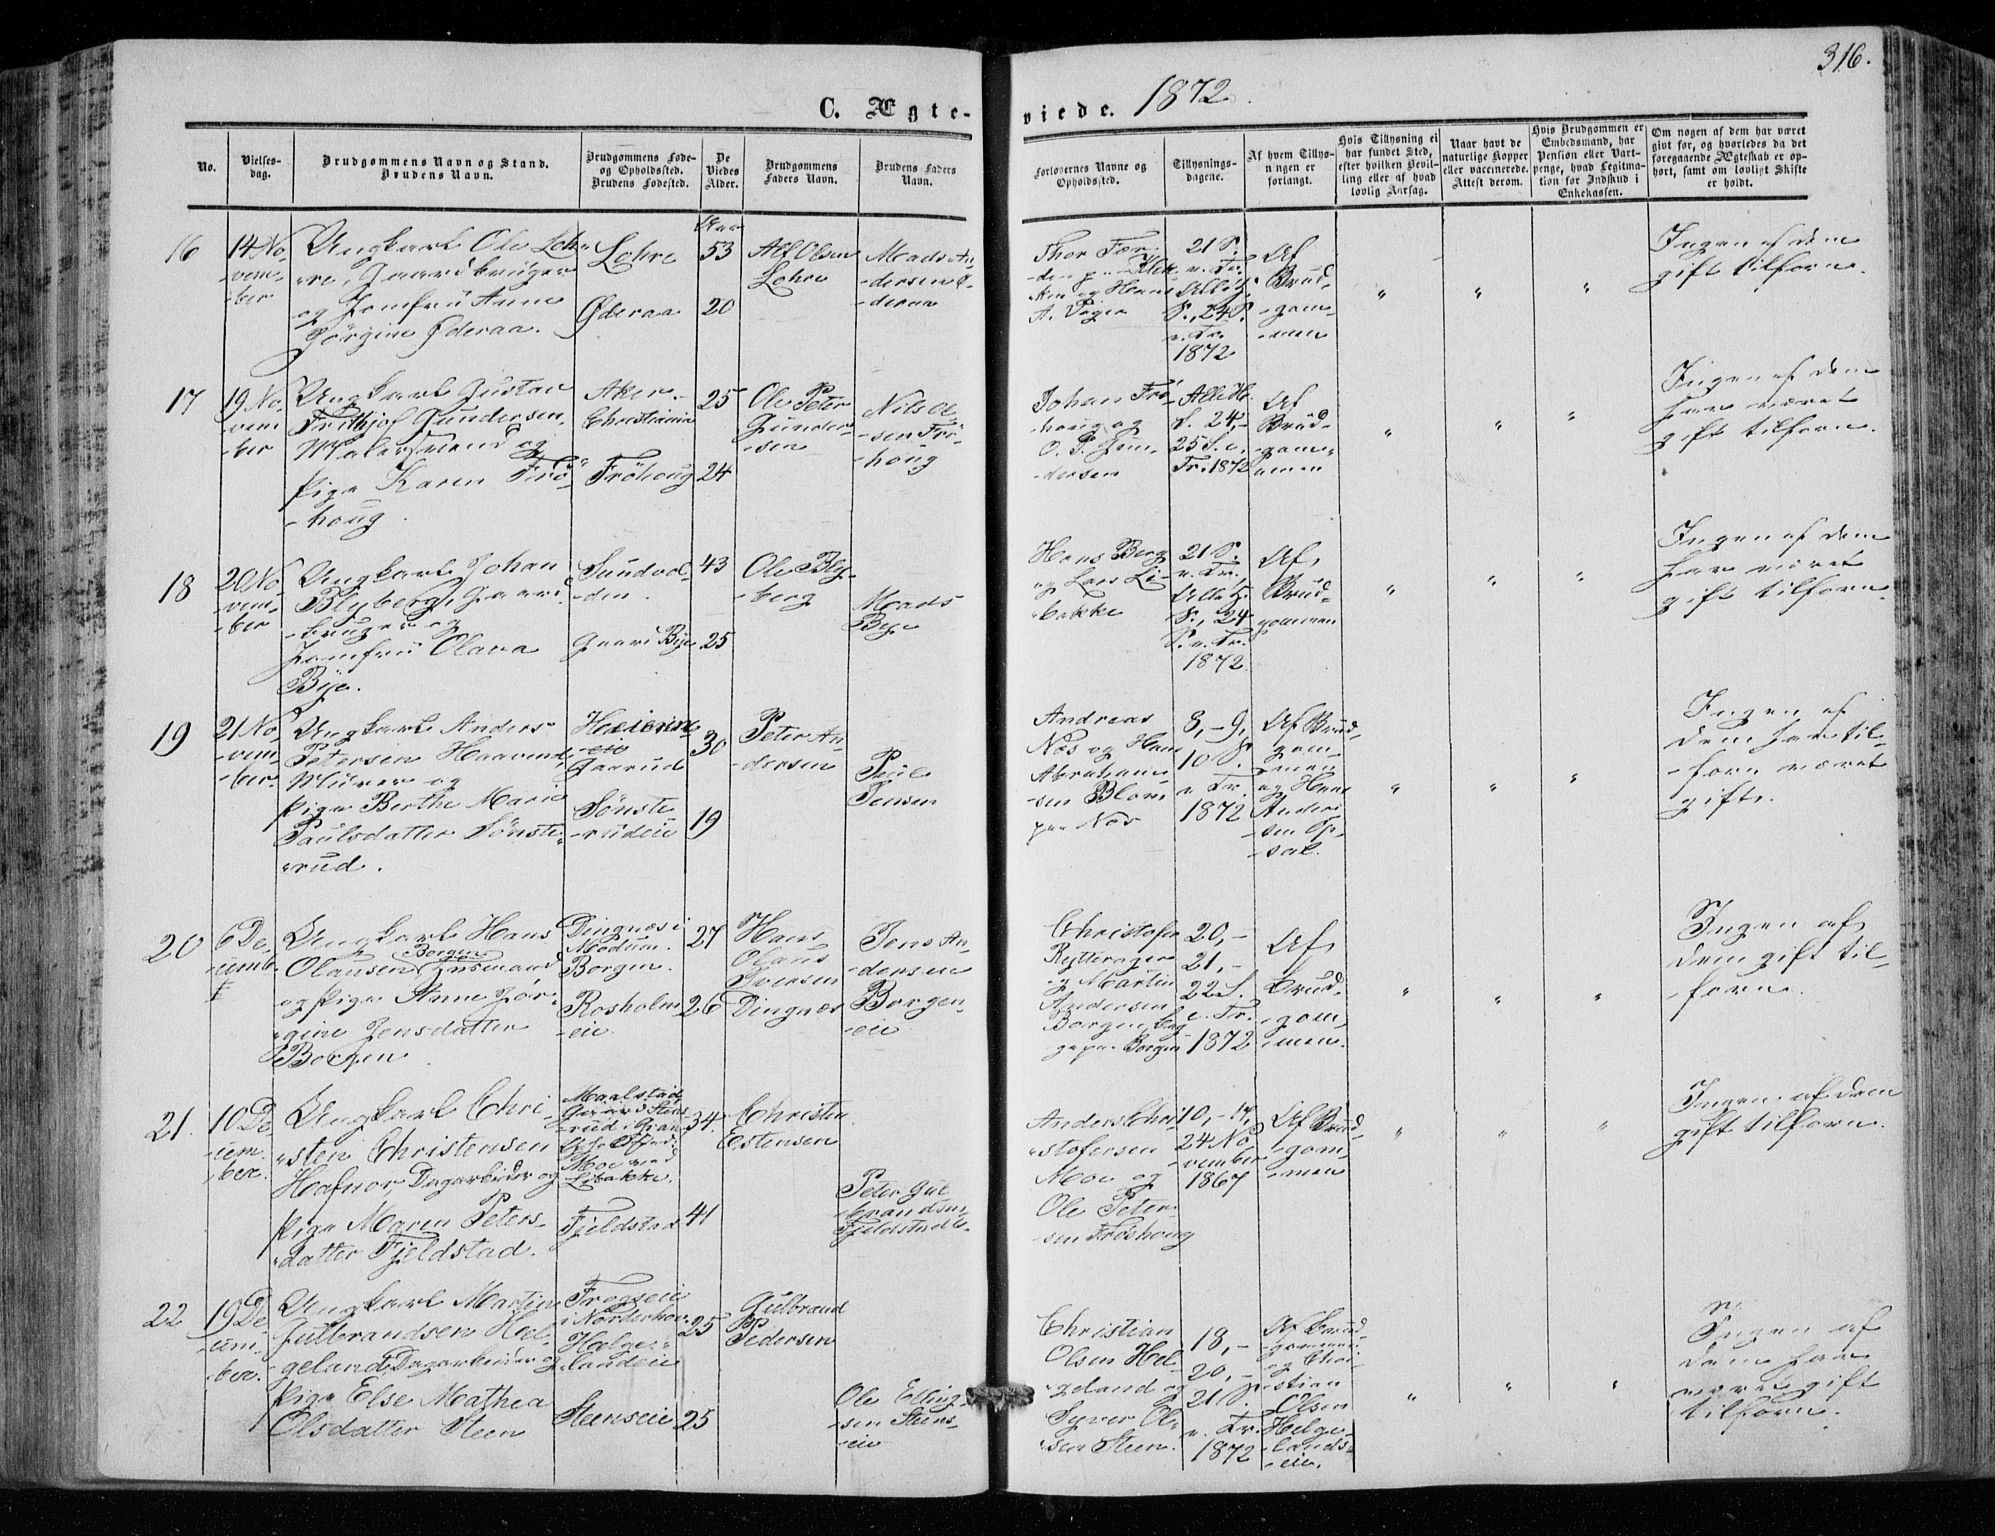 316.
C. Ægte-
viede. 1872.
No.
Vielses-
dag.
Brudgommens Navn og Stand.
Brudens Navn.
Brudgommens Føde-
og Opholdssted.
Brudens Fødested.
De
Viedes
Alder.
Brudgommens
Faders Navn.
Brudens Faders
Navn.
Forlovernes Navne og
Opholdssted.
Tillysnings-
dagene.
Af hvem Tillys-
ningen er
forlangt.
Hvis Tillysning ei
har fundet Sted,
efter hvilken Bevil-
ling eller af hvad
lovlig Aarsag.
Naar havt de
naturlige Kopper
eller vaccinerede.
Attest derom.
Hvis Brudgommen er
Embedsmand, har
Pension eller Vart-
penge, hvad Legitima-
tion for Indskud i
Enkekassen.
Om nogen af dem har været
gift før, og hvorledes da det
foregaaende Ægteskab er op-
hørt, samt om lovligt Skifte
er holdt.
16
14 No-
-vem-
-ber
Ungkarl Ole Loh-
-re, Gaardbruger
og Jomfru Anne
Jørgine Øderaa.
Lohre
Øderaa
Aar
53
20
Alf Olsen
Lohre
Mads An-
-dersen Ø-
-deraa
21 S.
e. Tr.
Alle H.
S., 24 S.
e. Tr.
1872
Af
Brud-
-gom-
-men
" " "
Ingen af dem
gift tilforn.
17
19 No-
vem
-ber
Ungkarl Gustav
Frithjof Gundersen,
Malersvend og
Pige Karen Frö-
-houg.
Aker-
Christiania
Fröhoug
25
24
Ole Peter
Gunder-
-sen
Nils Ol-
-sen Frö-
-houg
Johan Frö-
-houg og
O. P. Gun-
-dersen
Alle H.
S. 24,-
25 S. e.
Tr. 1872
Af
Brud-
-gom-
-men
" " "
Ingen af dem
har været
gift tilforn.
18
20 No-
-vem-
-ber
Ungkarl Johan
Blyberg, Gaard-
-bruger og
Jomfru Olava
Bye.
Sundvol-
-den.
Gaard Bye
43
25
Ole Bly-
-berg
Mads
Bye
Hans Berg
og Lars Li-
-bakke
21 S.
e. Tr.,
Alle H.
S., 24
S. e. Tr.
1872.
Af
Brud-
gommen
" " "
Ingen af dem
har været
gift tilforn.
19
21 No-
-vem-
-ber.
Ungkarl Anders
Petersen Haarud,
Murer og
Pige Berthe Marie
Paulsdatter Sönste-
-rud.
Gaarud
Sönste-
-rudeie
30
19
Peter An-
-dersen
Paul
Jensen
Andreas
Næs og Hans
Abraham-
-sen Blom
paa Næs
8,-9,
10 S.
e. Tr.
1872
Af Brud-
gom-
-men
og Hans
Ander-
-sen Op-
-sal.
" " "
Ingen af
dem har til-
-forn været
gift.
20
6 De-
-cemb-
Ungkarl Hans
Olausen Borgen Husmand
og Pige Anne Jör-
-gine Jensdatter
Borgen
Dingnæs i
Modum.
Borgen.
Rosholm-
-eie.
27
26
Hans
Olaus
Iversen
Dingnæs
Jens An-
-dersen
Borgen-
-eie
Christofer
Rytterager
og Martin
Andersen
Borgen
paa Borgen
20,-
21,-
22 S.
e. Tr.
1872
Af
Brud-
-gom-
-men.
" " "
Ingen af
dem gift til-
-forn.
21.
10 De-
-cem-
-ber.
Ungkarl Chri-
-sten Christensen
Hafnor, Dagarbeider og
Pige Maren Peters-
-datter Fjeldstad.
Moe ved
Libakke.
Fjeldstad
34.
41
Christen
Estensen
Peter Gul-
-brandsen
Anders Chri-
-stofersen
Moe og
Ole Peter-
-sen Fröshoug
10,-17,
24 No-
-vember
1867
Af Brud-
-gom-
-men
" " "
Ingen af dem
gift tilforn.
22
19 De-
-cem-
-ber.
Ungkarl Martin
Gulbrandsen Hel-
-geland, Dagarbeider og
Pige Else Mathea
Olsdatter Steen
Frogseie
i Norderhov
Helge-
-landeie
Steenseie
25
25
Gulbrand
Pedersen
Ole Elling-
-sen Steens-
-eie
Christian
Olsen Hel-
-geland og
Syver Ol-
-sen Steen.
18,-
20,-
21 S.
e. Tr.
1872
Af Brud-
-gommen
og Chri-
-stian
Olsen
Helge-
-lands-
-eie.
" " "
Ingen af
dem har
været gift
tilforn.